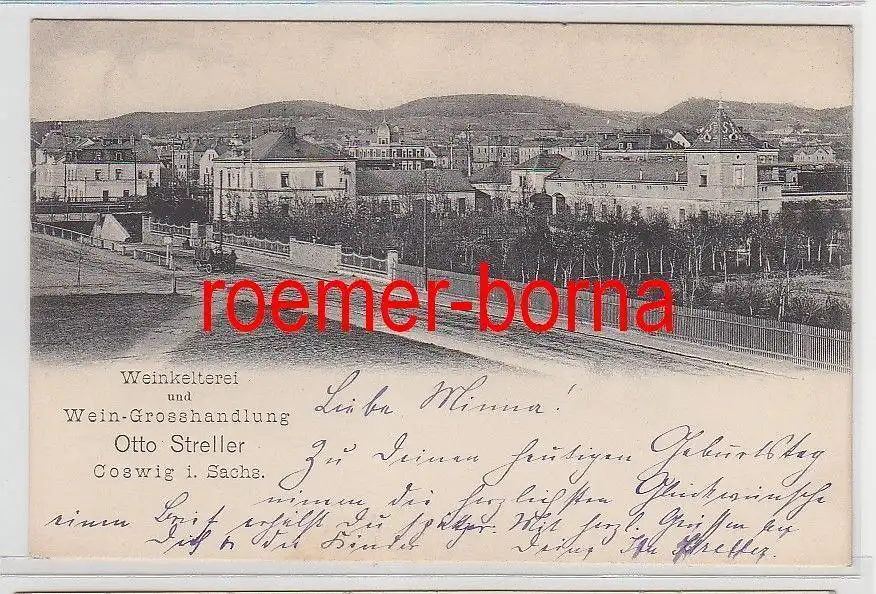 roemer-borna
Weinkelterei
und
Wein-Grosshandlung
Otto Streller
Coswig i. Sachs.
Liebe Minna!
Zu Deinen heutigen Geburtstag
nimm die herzlichsten Glückwünsche
einen Brief erhälst Du später. Mit herzl. Grüssen an
Dich & die Kinder Deine Streller.